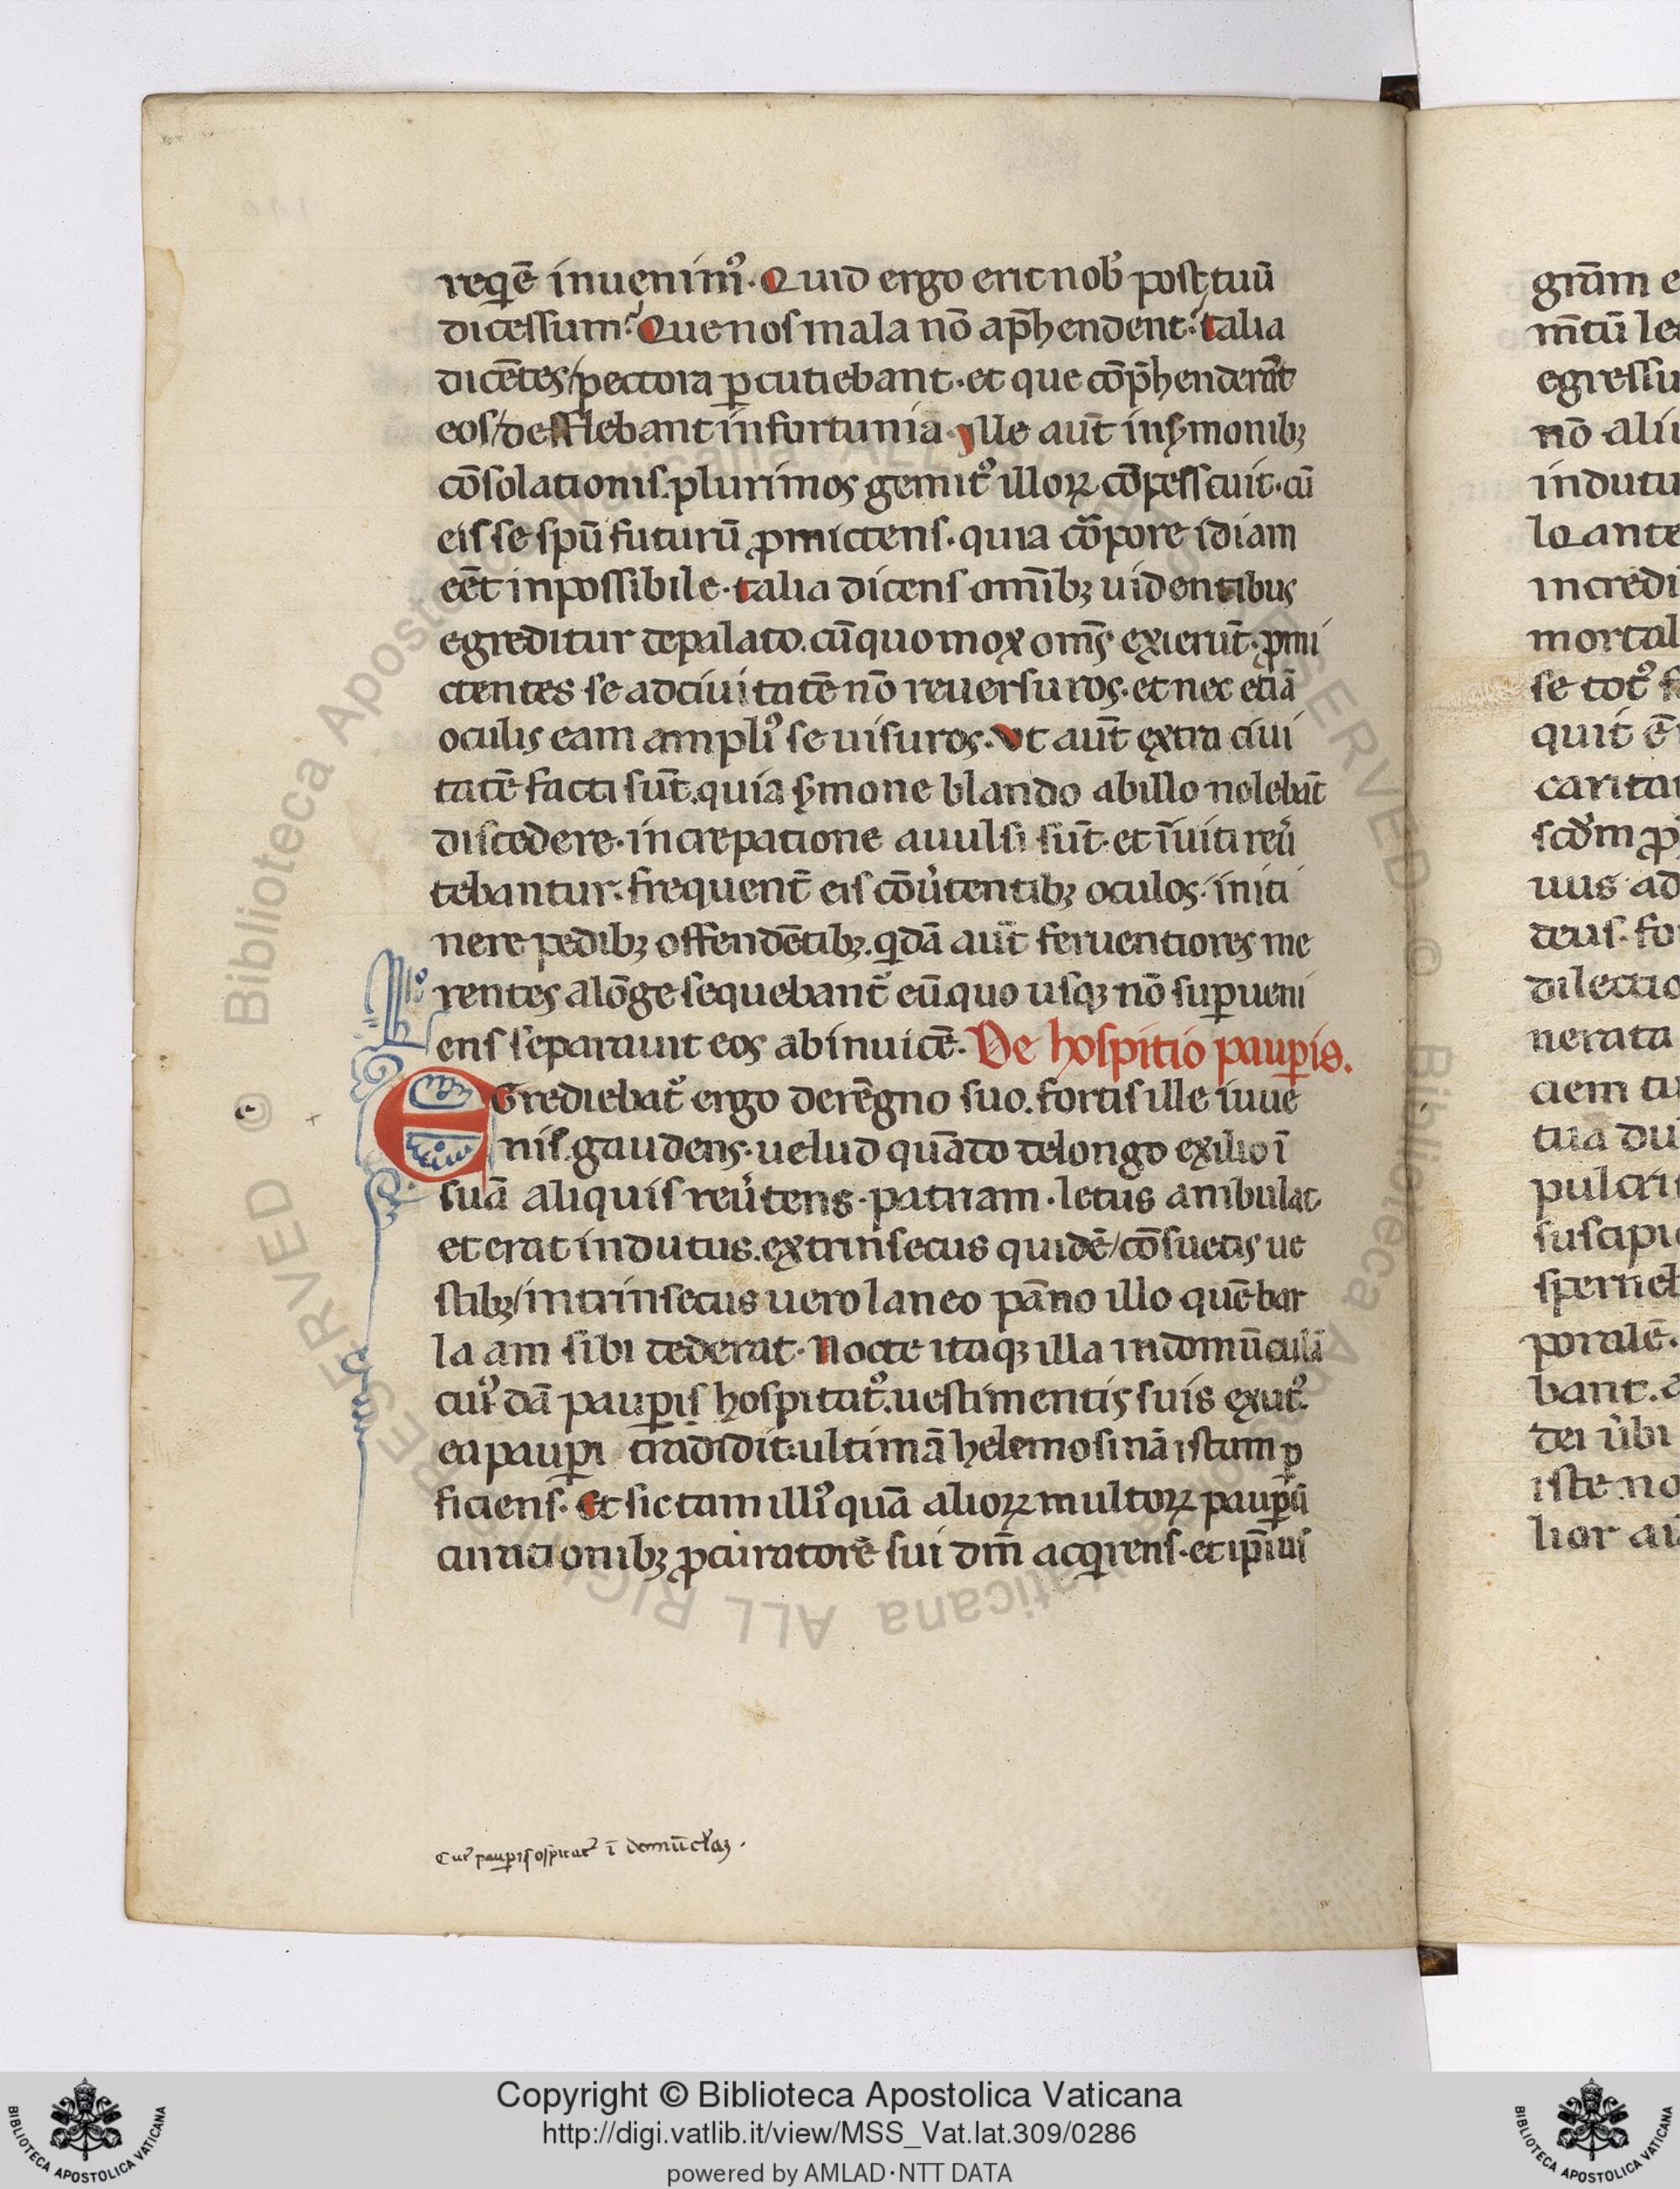 reqͥē inuenimꝰ. Quid ergo erit nobͥ post tuū
dicessum? Que nos mala nō ap̄hendent? talia
dicētes/ pectora ꝑcutiebant. et que cōp̄henderūt
eos/ defflebant infortunia. Ille aut̄ in ẏmonibꝫ
cōsolationis. plurimos gemitꝰ illoꝝ cōpesscuit. cū
eis se spū futurū ꝓmictens. quia cōrpore idiam
eēt inpossibile. talia dicens om̄ibꝫ uidentibus
egreditur depalato. cū quo mox om̄s exierūt. ꝓmi
ctentes se adciuitatē nō reuersuros. et nec etiā
oculis eam ampliꝰ se uisuros. Ut aut̄ extra ciui
tatē facti sūt. quia ẏmone blando abillo nolebāt
discedere. increpatione auulsi sūt. et īuiti reu̾
tebantur. frequent̄ eis cōu̾tentibꝫ oculos. initi
nere pedibꝫ offendētibꝫ. qͥdā aut̄ feruentiores me
rentes alōge sequebant᷑ eū. quo usqꝫ nō suꝑueni
ens separauit eos abinuicē. De hospitio pauꝑis.
Egrediebat᷑ ergo derēgno suo. fortis ille iuue
nis. gaudens. uelud quāto delongo exilio ī
suā aliquis reu̾tens. patriam. letus ambulat
et erat indutus. extrinsecus quidē/ cōsuetis ue
stibꝫ/ intrinsecus uero laneo pāno illo quē bar
laam sibi dederat. Nocte itaqꝫ illa in domūculā
cuiꝰdā pauꝑis hospitatꝰ. uestimentis suis exutꝰ.
ea pauꝑi tradidit. ultimā helemosinā istam ꝑ
ficiens. Et sic tam illiꝰ quā alioꝝ multoꝝ pauꝑū
curationibꝫ ꝓcuratorē sui dm̄ acqͥrens. et ip̄ius
Cuiꝰ pauꝑis ospitatꝰ ī
Copyright © Biblioteca Apostolica Vaticana
http://digi.vatlib.it/view/MSS_Vat.lat.309/0286
powered by AMLAD·NTT DATA